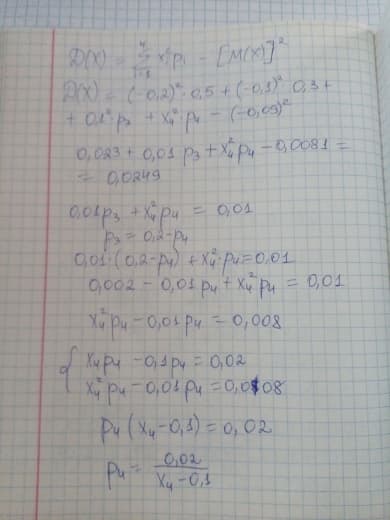 D(X) = 4 Σ i=1 x²ᵢpᵢ - [M(X)]²
D(X) = (-0,2)²·0,5 + (-0,1)²·0,3 +
+ 0,1²·p₃ + x₄²·p₄ - (-0,09)²
0,023 + 0,01 p₃ + x₄²p₄ - 0,0081 =
= 0,0249
0,01p₃ + x₄²p₄ = 0,01
p₃ = 0,2-p₄
0,01·(0,2-p₄) + x₄²·p₄ = 0,01
0,002 - 0,01p₄ + x₄²p₄ = 0,01
x₄²p₄ - 0,01p₄ = 0,008
{ x₄p₄ - 0,1p₄ = 0,02
x₄²p₄ - 0,01p₄ = 0,008
p₄(x₄-0,1) = 0,02
p₄ = 0,02 / x₄-0,1